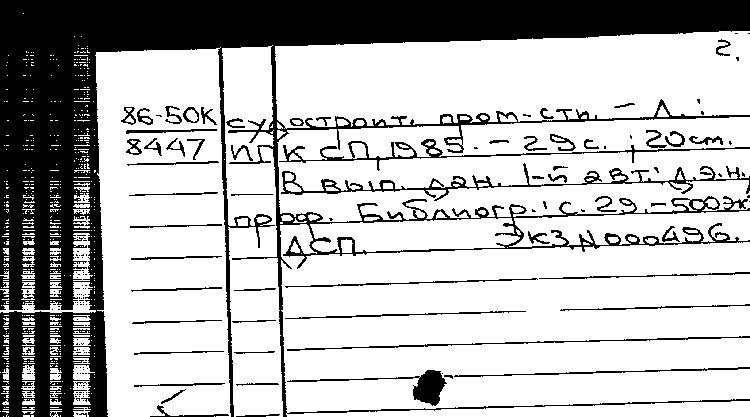 2.
86-50К судостроит. пром-сти. – Л.:
8447 ИПК СП, 1985. – 29 с. ; 20 см.
В вып. дан. 1-й авт.: д.э.н.,
проф. Библиогр.: с. 29. – 500 эк
ДСП. Экз. N 000496.